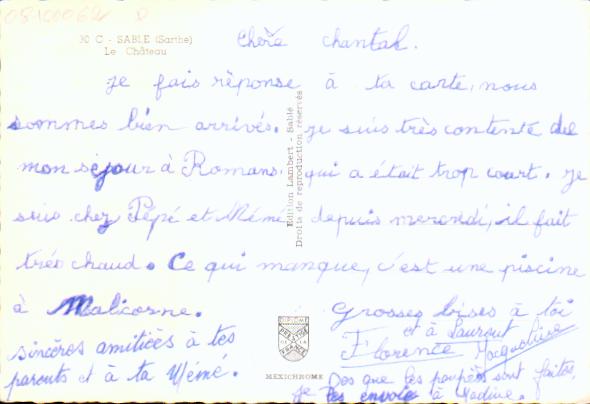 08100062 D
30 C - SABLE (Sarthe)
Le Château
Chère chantal.
je fais réponse à ta carte, nous
sommes bien arrivés. je suis très contente de
mon séjour à Romans. qui a était trop court. je
suis chez Pépé et Mémé depuis mercredi, il fait
très chaud. Ce qui manque, c'est une piscine
à Malicorne.
Grosses bises à toi
et à Laurent
Florence Macqueline
sincères amitiées à tes
parents et à ta Mémé.
Des que les poupées sont faites,
je les envoie à Nadine.
Edition Lambert - Sablé
Droits de reproduction réservés
DIPLOME
PRESTIGE
DE LA
FRANCE
MEXICHROME